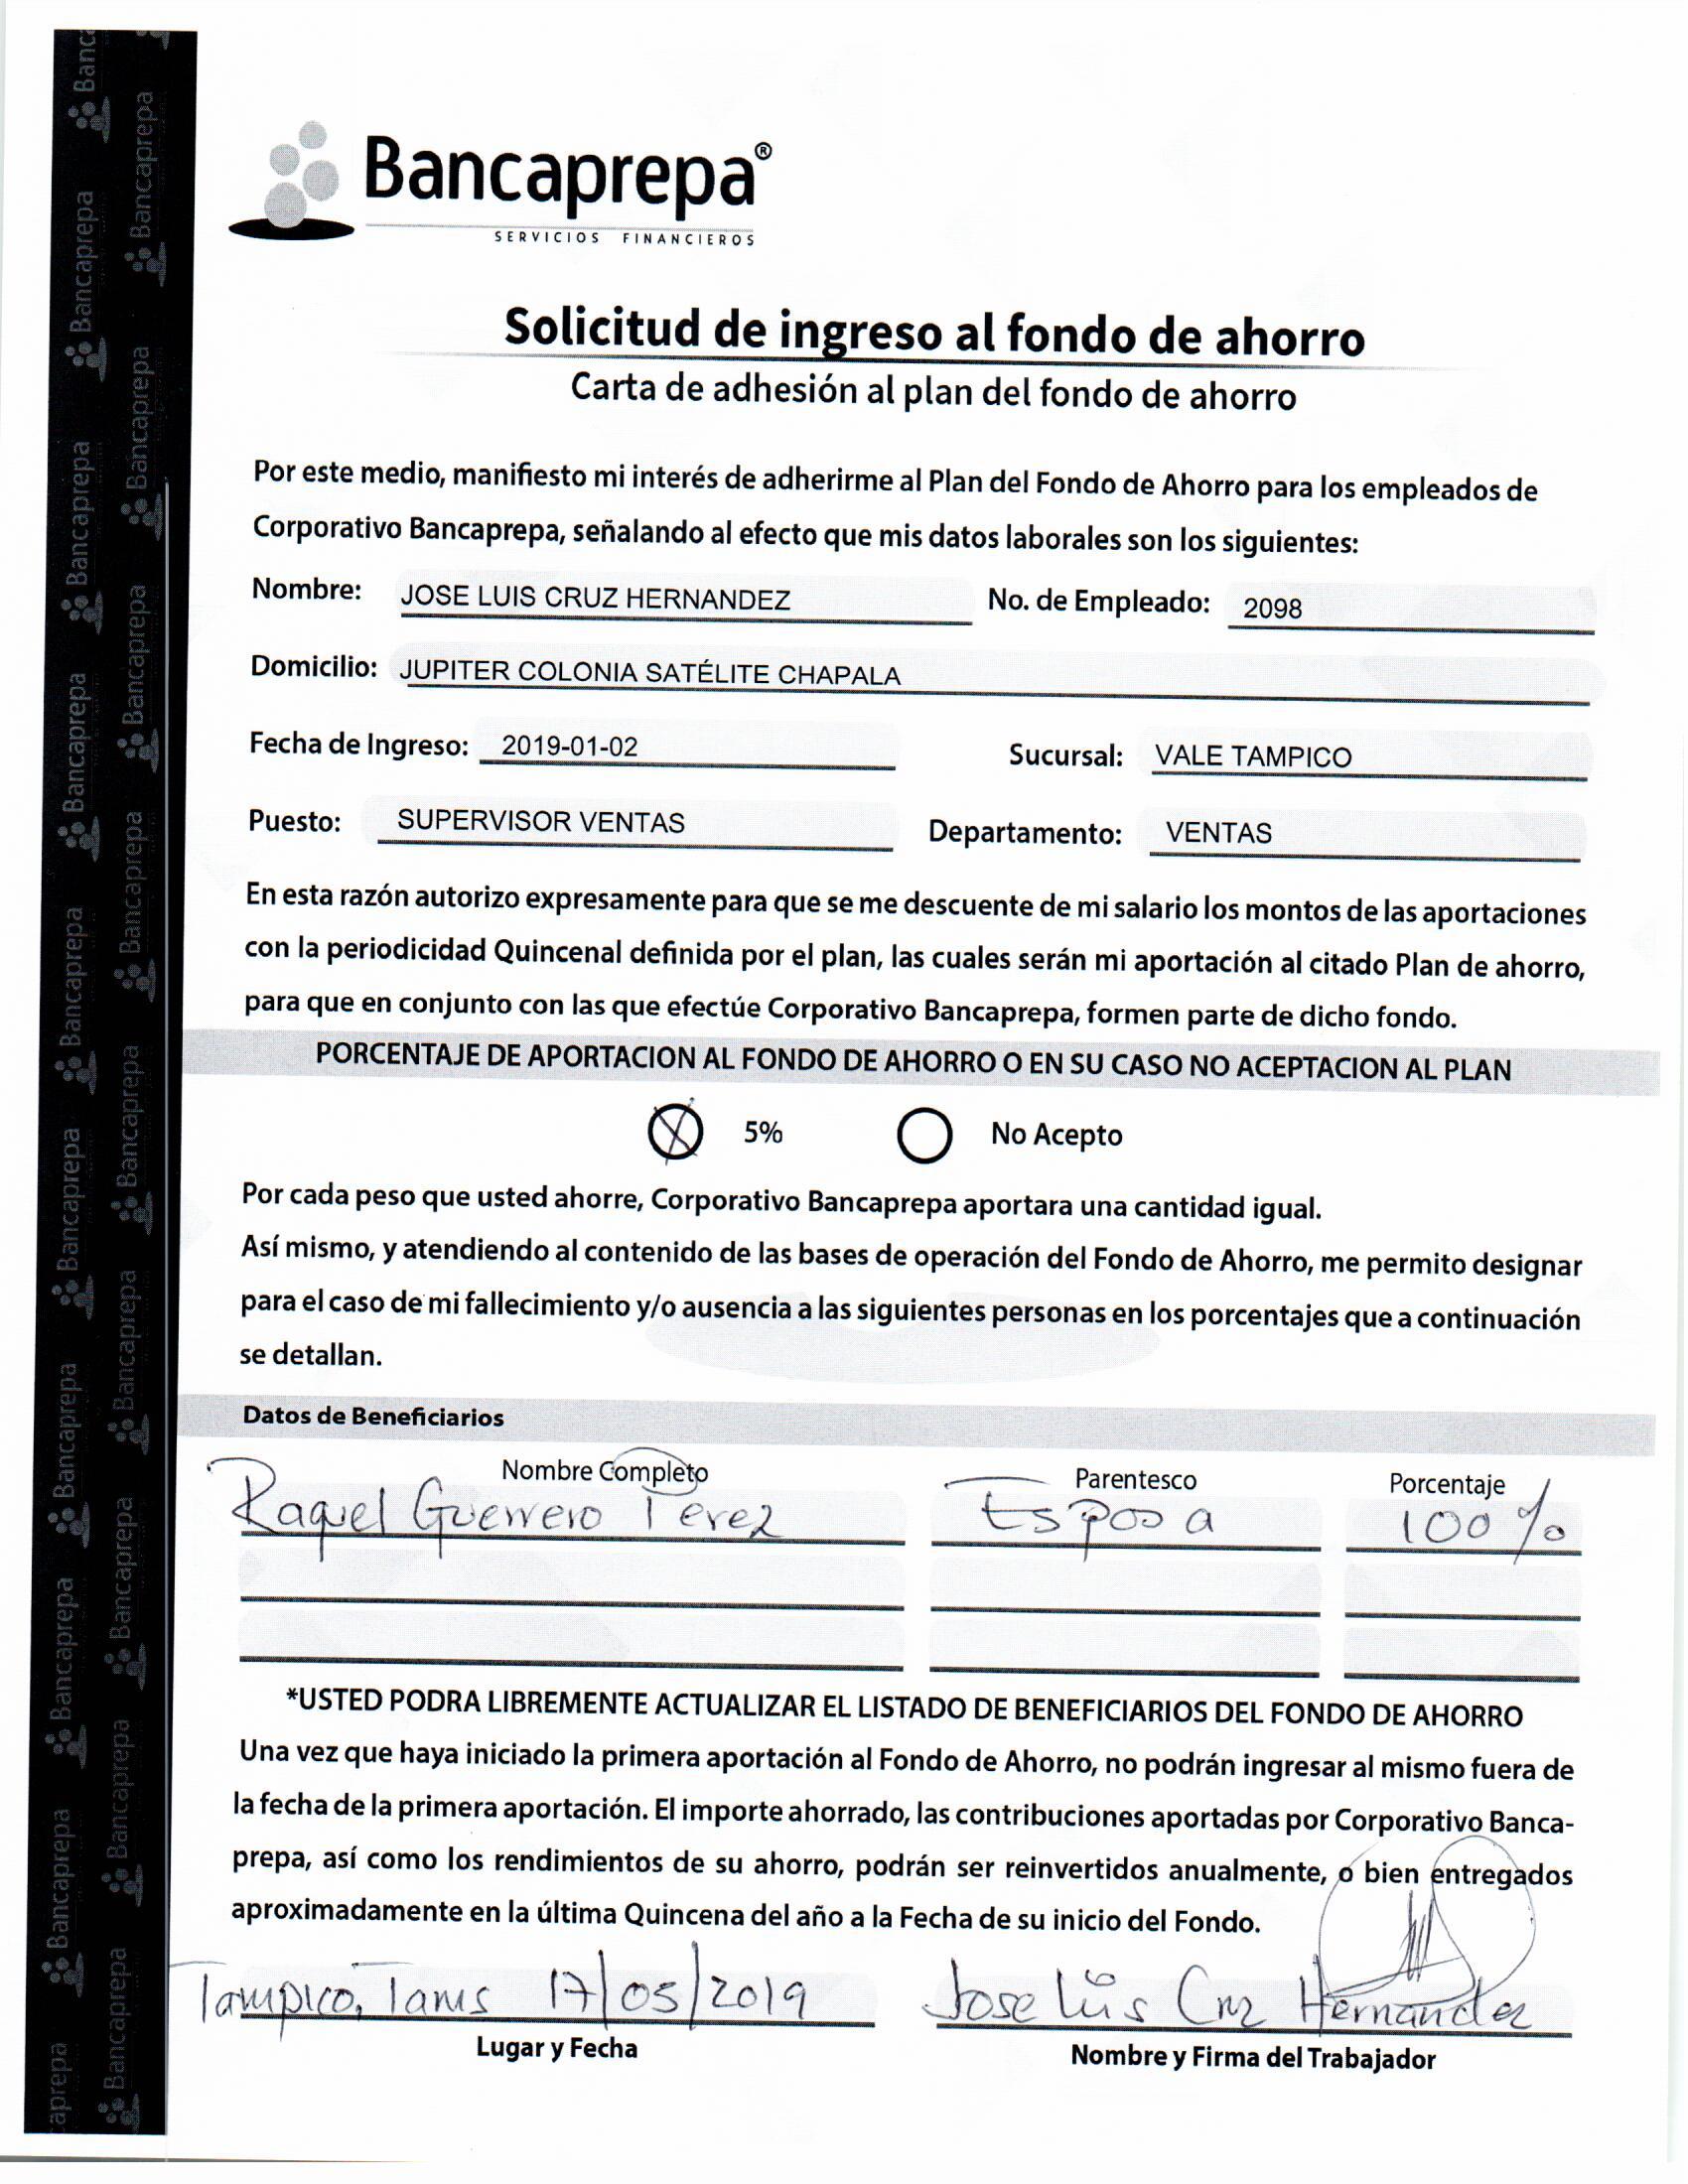 Bancaprepa®
SERVICIOS FINANCIEROS
Solicitud de ingreso al fondo de ahorro
Carta de adhesión al plan del fondo de ahorro
Por este medio, manifiesto mi interés de adherirme al Plan del Fondo de Ahorro para los empleados de
Corporativo Bancaprepa, señalando al efecto que mis datos laborales son los siguientes:
Nombre: JOSE LUIS CRUZ HERNANDEZ No. de Empleado: 2098
Domicilio: JUPITER COLONIA SATÉLITE CHAPALA
Fecha de Ingreso: 2019-01-02 Sucursal: VALE TAMPICO
Puesto: SUPERVISOR VENTAS Departamento: VENTAS
En esta razón autorizo expresamente para que se me descuente de mi salario los montos de las aportaciones
con la periodicidad Quincenal definida por el plan, las cuales serán mi aportación al citado Plan de ahorro,
para que en conjunto con las que efectúe Corporativo Bancaprepa, formen parte de dicho fondo.
PORCENTAJE DE APORTACION AL FONDO DE AHORRO O EN SU CASO NO ACEPTACION AL PLAN
X 5% No Acepto
Por cada peso que usted ahorre, Corporativo Bancaprepa aportara una cantidad igual.
Así mismo, y atendiendo al contenido de las bases de operación del Fondo de Ahorro, me permito designar
para el caso de mi fallecimiento y/o ausencia a las siguientes personas en los porcentajes que a continuación
se detallan.
Datos de Beneficiarios
Nombre Completo Parentesco Porcentaje
Raquel Guerrero Perez Esposa 100%
*USTED PODRA LIBREMENTE ACTUALIZAR EL LISTADO DE BENEFICIARIOS DEL FONDO DE AHORRO
Una vez que haya iniciado la primera aportación al Fondo de Ahorro, no podrán ingresar al mismo fuera de
la fecha de la primera aportación. El importe ahorrado, las contribuciones aportadas por Corporativo Banca-
prepa, así como los rendimientos de su ahorro, podrán ser reinvertidos anualmente, o bien entregados
aproximadamente en la última Quincena del año a la Fecha de su inicio del Fondo.
Tampico, Tams 17/05/2019 Jose Luis Cruz Hernandez
Lugar y Fecha Nombre y Firma del Trabajador